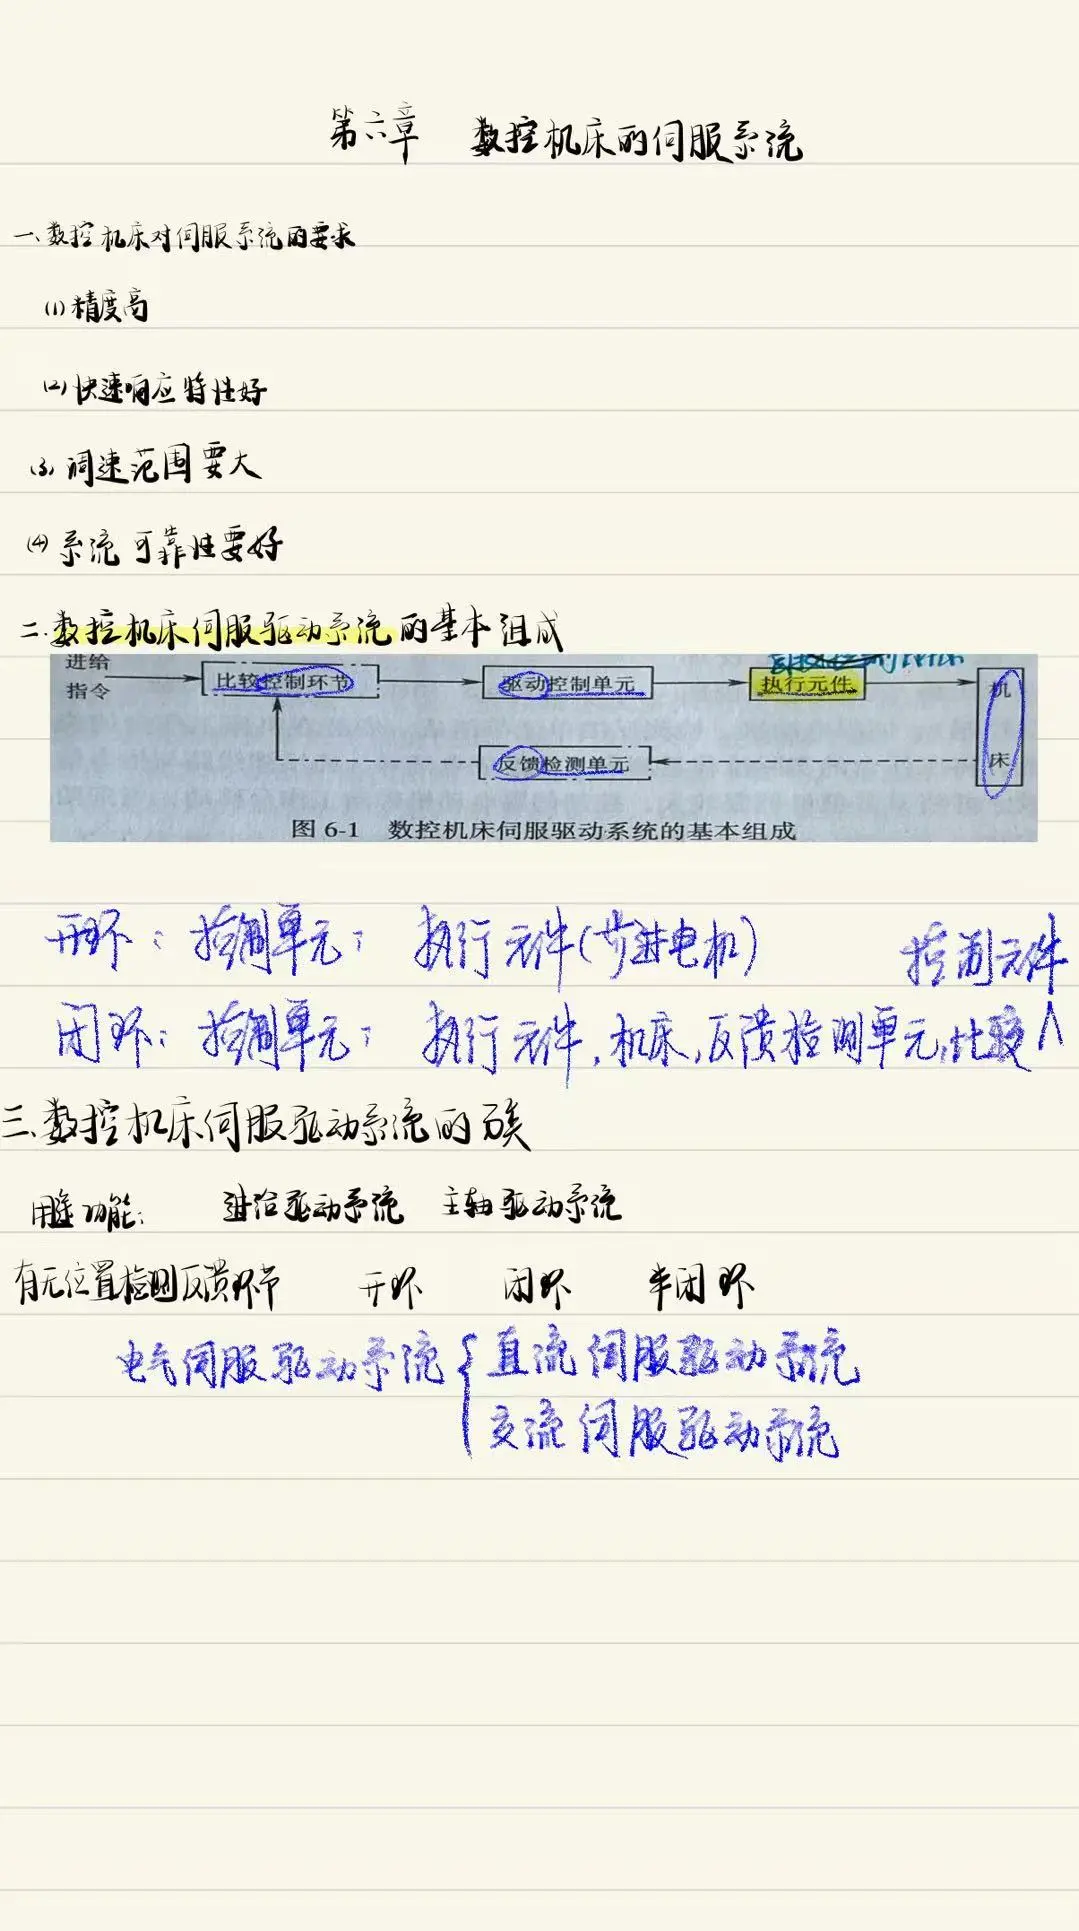 第六章 数控机床的伺服系统
一、数控机床对伺服系统的要求
(1)精度高
(2)快速响应特性好
(3)调速范围要大
(4)系统可靠性要好
二、数控机床伺服驱动系统的基本组成
进给
指令
比较控制环节
驱动控制单元
执行元件
机
床
反馈检测单元
图 6-1 数控机床伺服驱动系统的基本组成
开环:控制单元; 执行元件(步进电机)
控制元件
闭环:控制单元; 执行元件,机床,反馈检测单元,比较
三、数控机床伺服驱动系统的分类
功能: 进给驱动系统 主轴驱动系统
有无位置检测反馈环节 开环 闭环 半闭环
电气伺服驱动系统{直流伺服驱动系统
交流伺服驱动系统